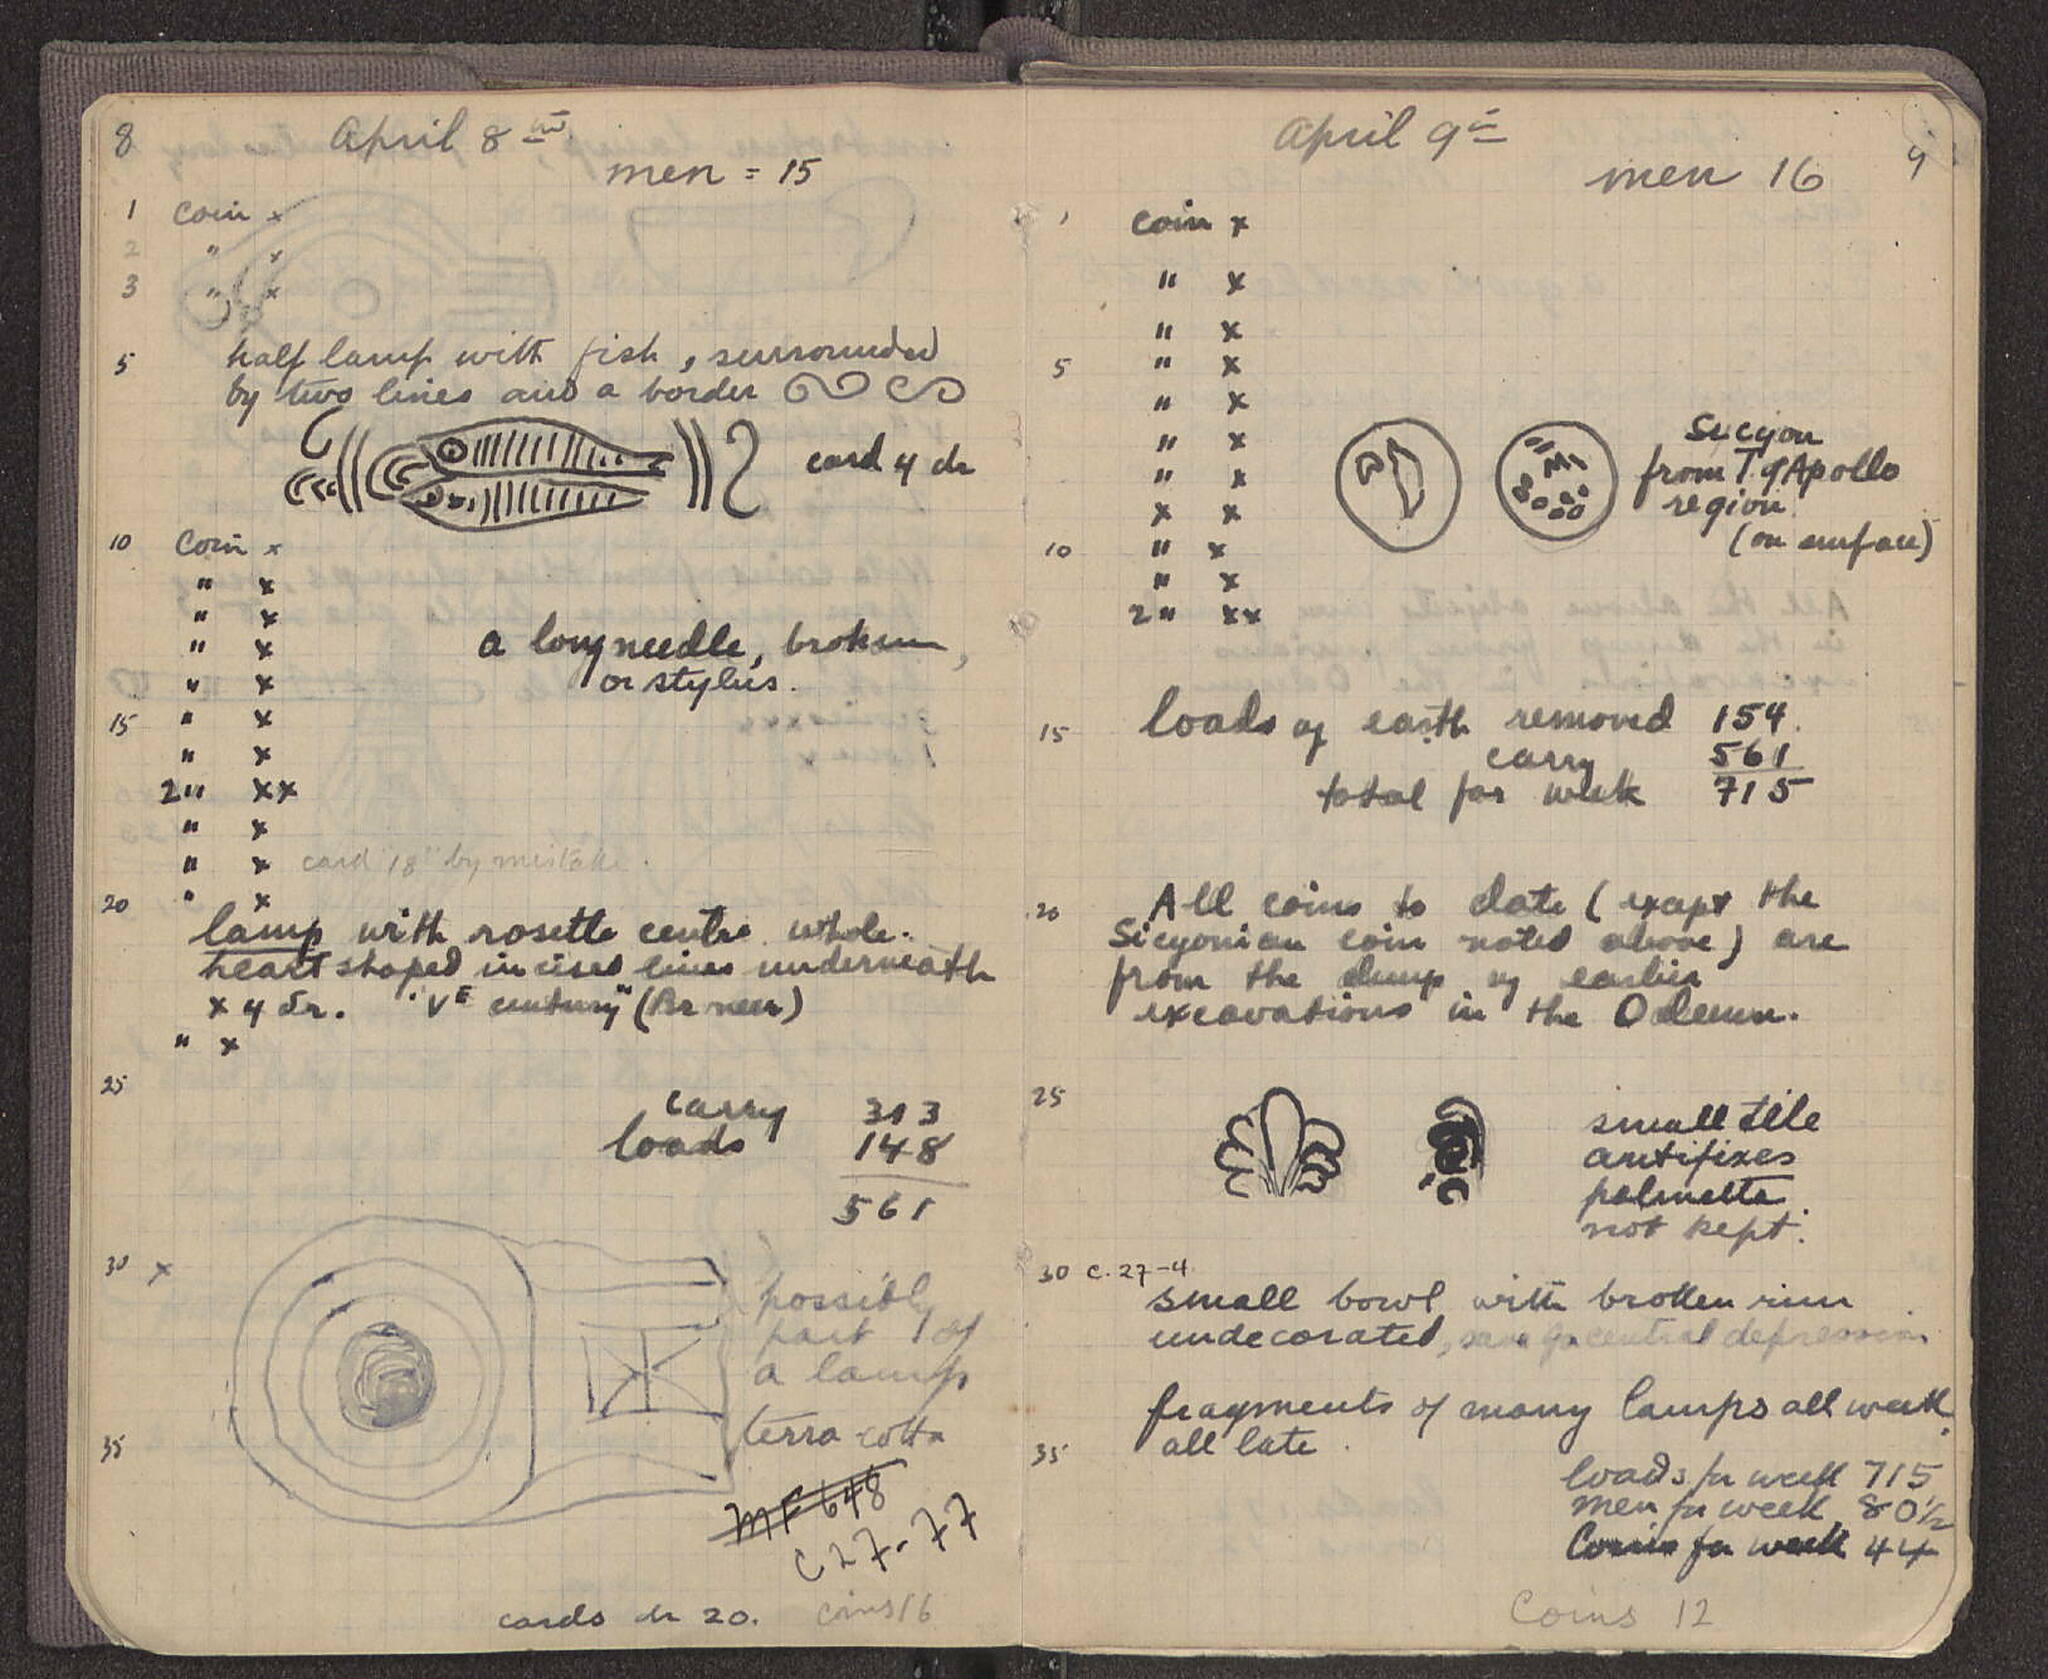 8
April 8th
men = 15
1 coin x
2 " x
3 " x
5 half lamp with fish, surrounded
by two lines and a border
card 4 dr
10 Coin x
" x
" x
" x a long needle, broken,
" x or stylus.
15 " x
" x
2 " xx
" x
" x card "18" by mistake.
20 " x
lamp with rosette centre whole.
heart shaped incised lines underneath
x 4 dr. "VE century" (Broneer)
" x
25
carry 313
loads 148
561
30 x
possibly
part of
a lamp
terra-cotta
35
MF 648
C27-77
cards dr 20. coins 16
April 9th
9
men 16
1 coin x
" x
" x
5 " x
" x
" x
" x
x x
10 " x
" x
2 " xx
Sicyon
from T. of Apollo
region
(on surface)
15 loads of earth removed 154.
carry 561
total for week 715
20 All coins to date (except the
Sicyonian coin noted above) are
from the dump of earlier
excavations in the Odeum.
25
small tile
antifixes
palmette
not kept.
30 C. 27-4
small bowl, with broken rim
undecorated, central depression
fragments of many lamps all week.
35 all late.
loads for week 715
men for week 80½
Coins for week 44
Coins 12